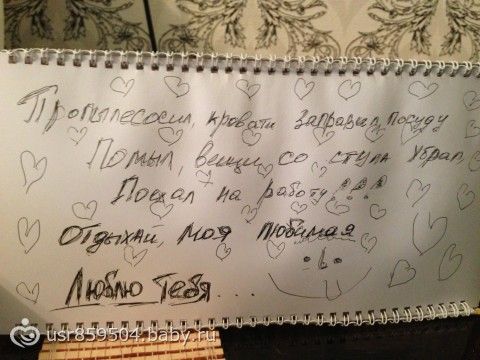 Пропылесосил, кровати заправил, посуду
Помыл, вещи со стула убрал,
Поехал на работу!!!
Отдыхай, моя любимая
Люблю тебя....
usr859504.baby.ru